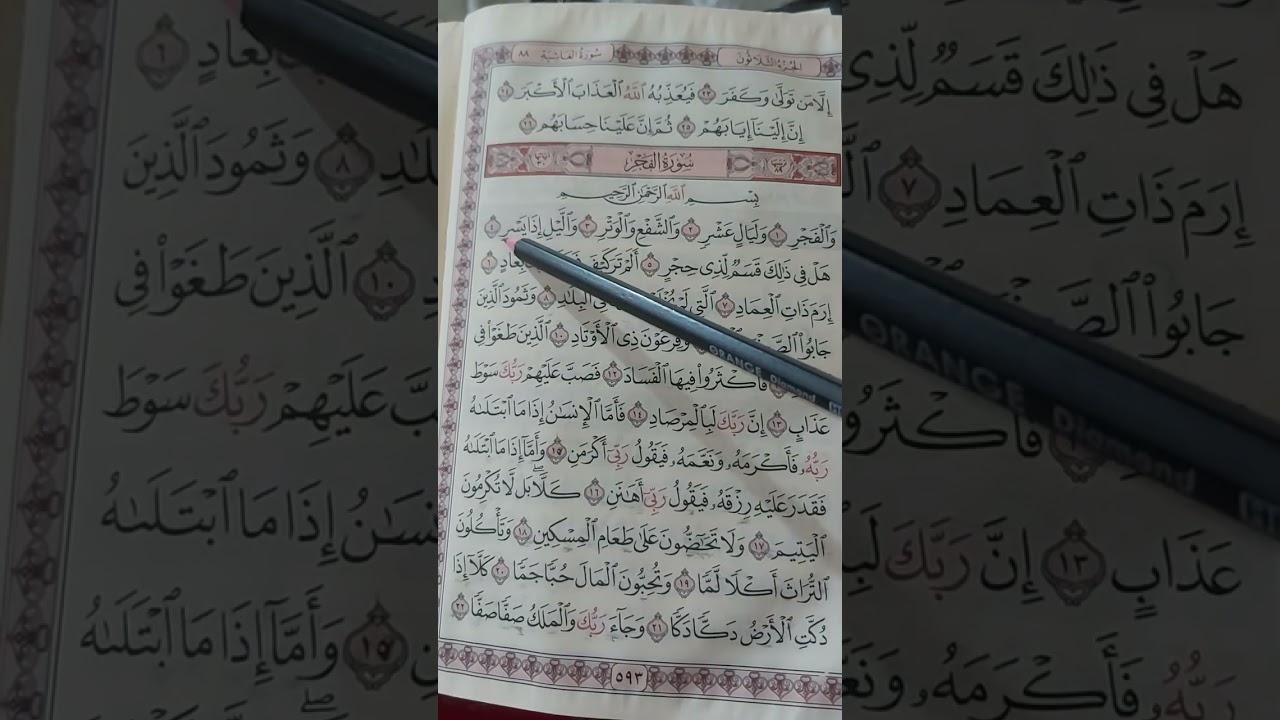 الجزء الثلاثون سورة الغاشية ٨٨
إِلَّا مَن تَوَلَّىٰ وَكَفَرَ ٢٣ فَيُعَذِّبُهُ ٱللَّهُ ٱلْعَذَابَ ٱلْأَكْبَرَ ٢٤
إِنَّ إِلَيْنَآ إِيَابَهُمْ ٢٥ ثُمَّ إِنَّ عَلَيْنَا حِسَابَهُم ٢٦
سُورَةُ الفَجْرِ
بِسْمِ ٱللَّهِ ٱلرَّحْمَٰنِ ٱلرَّحِيمِ
وَٱلْفَجْرِ ١ وَلَيَالٍ عَشْرٍ ٢ وَٱلشَّفْعِ وَٱلْوَتْرِ ٣ وَٱلَّيْلِ إِذَا يَسْرِ ٤
هَلْ فِى ذَٰلِكَ قَسَمٌ لِّذِى حِجْرٍ ٥ أَلَمْ تَرَ كَيْفَ بِعَادٍ ٦
إِرَمَ ذَاتِ ٱلْعِمَادِ ٧ ٱلَّتِى لَمْ فِى ٱلْبِلَٰدِ ٨ وَثَمُودَ ٱلَّذِينَ
جَابُوا۟ ٱلصَّخْرَ وَفِرْعَوْنَ ذِى ٱلْأَوْتَادِ ١٠ ٱلَّذِينَ طَغَوْا۟ فِى
فَأَكْثَرُوا۟ فِيهَا ٱلْفَسَادَ ١٢ فَصَبَّ عَلَيْهِمْ رَبُّكَ سَوْطَ
عَذَابٍ ١٣ إِنَّ رَبَّكَ لَبِٱلْمِرْصَادِ ١٤ فَأَمَّا ٱلْإِنسَٰنُ إِذَا مَا ٱبْتَلَىٰهُ
رَبُّهُۥ فَأَكْرَمَهُۥ وَنَعَّمَهُۥ فَيَقُولُ رَبِّىٓ أَكْرَمَنِ ١٥ وَأَمَّآ إِذَا مَا ٱبْتَلَىٰهُ
فَقَدَرَ عَلَيْهِ رِزْقَهُۥ فَيَقُولُ رَبِّىٓ أَهَٰنَنِ ١٦ كَلَّا ۖ بَل لَّا تُكْرِمُونَ
ٱلْيَتِيمَ ١٧ وَلَا تَحَٰٓضُّونَ عَلَىٰ طَعَامِ ٱلْمِسْكِينِ ١٨ وَتَأْكُلُونَ
ٱلتُّرَاثَ أَكْلًا لَّمًّا ١٩ وَتُحِبُّونَ ٱلْمَالَ حُبًّا جَمًّا ٢٠ كَلَّآ إِذَا
دُكَّتِ ٱلْأَرْضُ دَكًّا دَكًّا ٢١ وَجَآءَ رَبُّكَ وَٱلْمَلَكُ صَفًّا صَفًّا ٢٢
٥٩٣
ORANGE Diamond